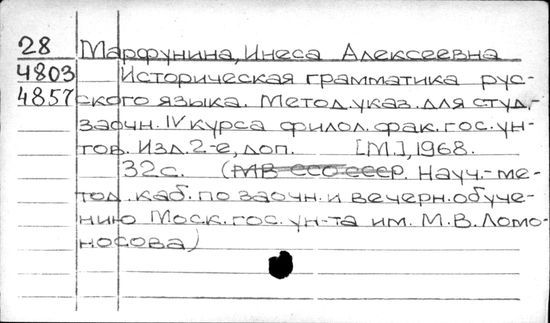 28 Марфунина, Инеса Алексеевна
4803 Историческая грамматика рус-
4857 ского языка. Метод. указ. для студ.-
заочн. IV курса филол. фак. гос. ун-
тов. Изд. 2-е, доп. [М.], 1968.
32 с. (МВ ССО СССР. Науч.-ме-
тод. каб. по заочн. и вечерн. обуче-
нию Моск. гос. ун-та им. М. В. Ломо-
носова)